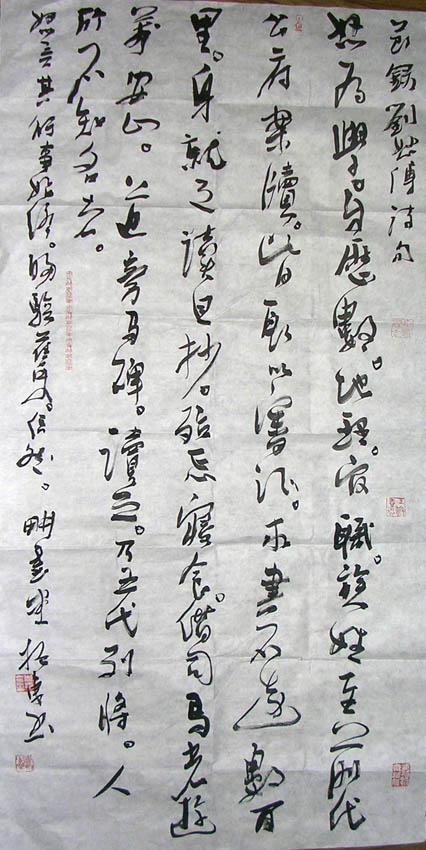 恕為學。自歷數。地理。官職。族姓至前代
公府案牘。皆取以審證。求書不遠數百
里。身就之讀且抄。殆忘寢食。偕司馬光遊
萬安山。道旁有碑。讀之。乃五代列將。人
所不知名者。
恕言其行事始終。歸驗舊史。信然。